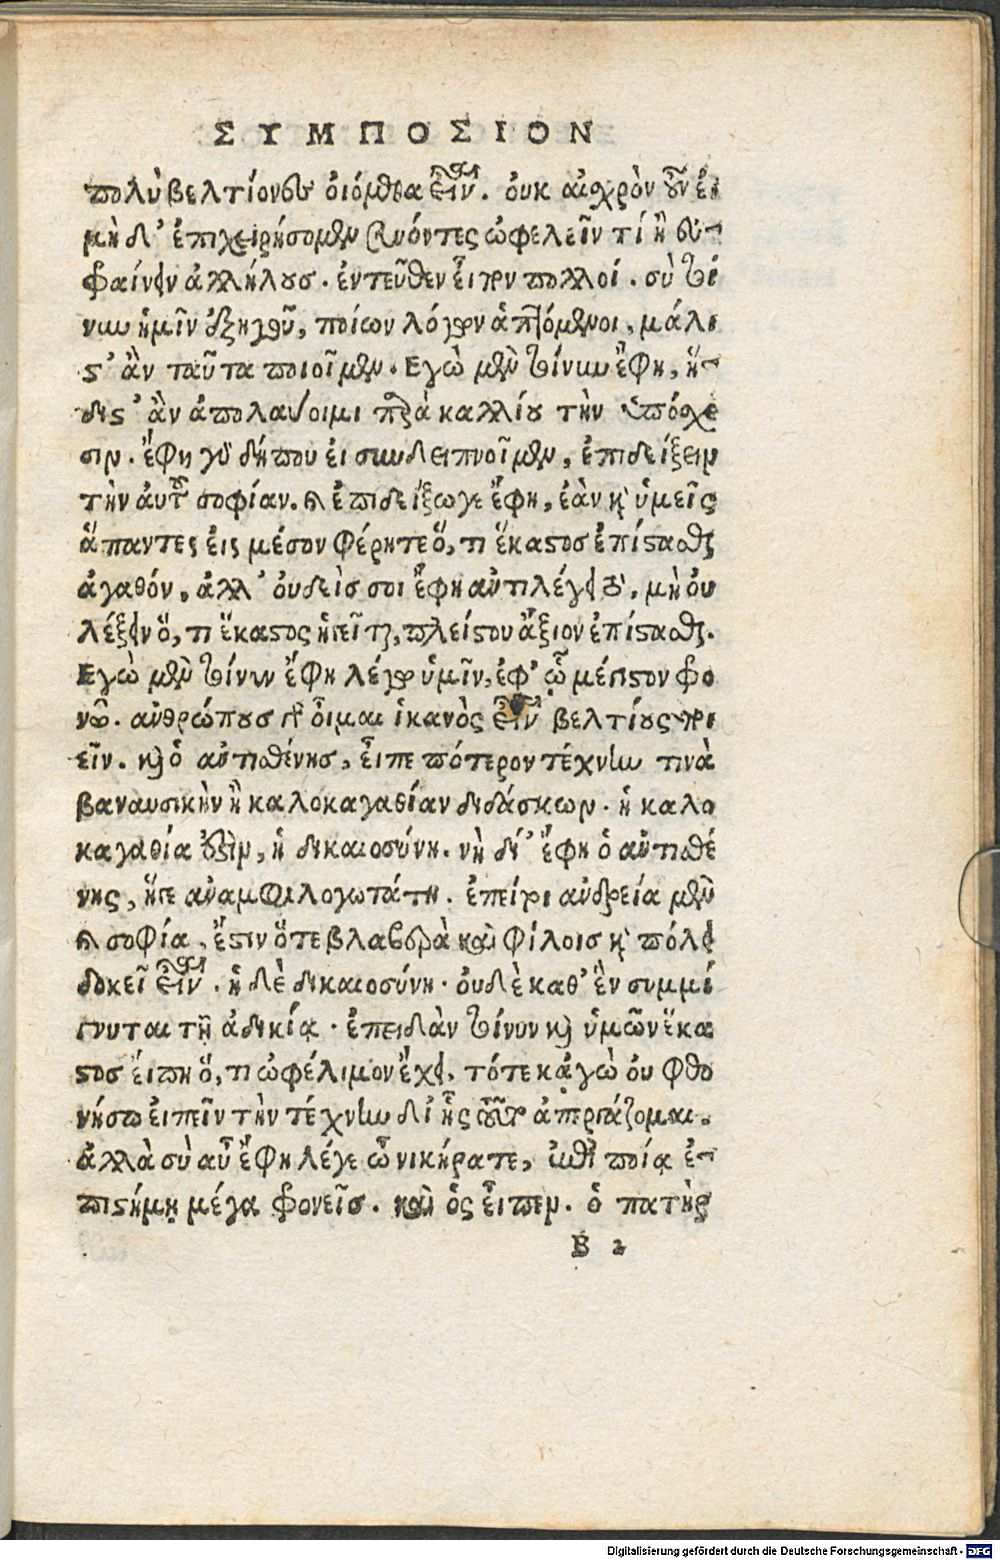 ΣΥΜΠΟΣΙΟΝ
πολὺ βελτίονες οἰόμεθα εἶναι. ὀυκ αἰσχρὸν οὖν ἐι
μὴ δ’ ἐπιχειρήσομεν συνόντες ὠφελεῖν τί ἢ ἐυ-
φραίνειν ἀλλήλους. ἐντεῦθεν εἶπον πολλοί. σὺ τοί
νυν ἡμῖν ἐξηγοῦ, ποίων λόγων ἁπτόμενοι, μάλι
ϛ’ ἂν ταῦτα ποιοῖμεν. Εγὼ μὲν τοίνυν ἔφη, ἥ-
διϛ’ ἂν ἀπολαύοιμι παρὰ καλλίου τὴν ὑπόσχε
σιν. ἔφη γὰρ δήπου ἐι συνδειπνοῖμεν, ἐπιδείξειν
τὴν ἀυτοῦ σοφίαν. καὶ ἐπιδείξωγε ἔφη, ἐὰν καὶ ὑμεῖς
ἅπαντες ἐις μέσον φέρητε ὅ, τι ἕκαϛος ἐπίϛασθε
ἀγαθόν, ἀλλ’ ὀυδείς σοι ἔφη ἀντιλέγει τὸ, μὴ ὀυ
λέξειν ὅ, τι ἕκαϛος ἡγεῖται, πλείϛου ἄξιον ἐπίϛασθαι.
Εγὼ μὲν τοίνυν ἔφη λέγω ὑμῖν, ἐφ’ ᾧ μέγιϛον φρο
νῶ. ἀνθρώπους γὰρ οἶμαι ἱκανὸς εἶναι βελτίους ποι
εῖν. καὶ ὁ ἀντισθένης, εἶπε πότερον τέχνην τινὰ
βαναυσικὴν ἢ καλοκαγαθίαν διδάσκων. ἡ καλο
καγαθία ἐϛὶν, ἡ δικαιοσύνη. νὴ δί’ ἔφη ὁ ἀντισθέ
νης, ἥγε ἀναμφιλογωτάτη. ἐπείτοι ἀνδρεία μὲν
καὶ σοφία, ἔϛιν ὅτε βλαβερὰ καὶ φίλοις καὶ πόλει
δοκεῖ εἶναι. ἡ δὲ δικαιοσύνη. ὀυδὲ καθ’ ἓν συμμί
γνυται τῇ ἀδικίᾳ. ἐπειδὰν τοίνυν καὶ ὑμῶν ἕκα
ϛος ἔιπῃ ὅ, τι ὠφέλιμον ἔχει, τότε κἀγὼ ὀυ φθο
νήσω ἐιπεῖν τὴν τέχνην δι’ ἧς τοῦτο ἀπεργάζομαι.
ἀλλὰ σὺ αὖ ἔφη λέγε ὦ νικήρατε, ἐπὶ ποίᾳ ἐ-
πιϛήμῃ μέγα φρονεῖς. καὶ ὃς εἶπεν. ὁ πατὴρ
B 2
Digitalisierung gefördert durch die Deutsche Forschungsgemeinschaft - DFG